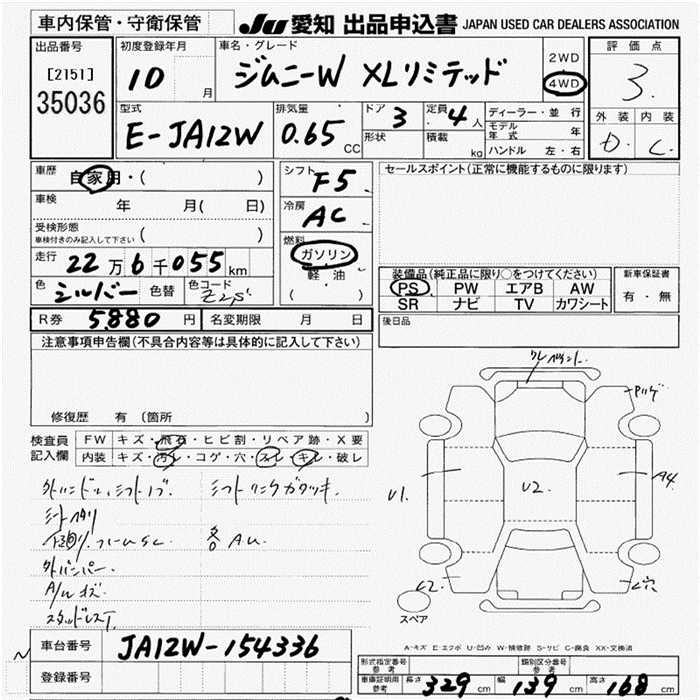 車内保管・守衛保管
JU 愛知 出品申込書 JAPAN USED CAR DEALERS ASSOCIATION
出品番号
[2151]
35036
初度登録年月
10 月
車名・グレード
ジムニーW XLリミテッド
2WD
4WD
評価点
3.
外装 内装
D. C.
型式
E-JA12W
排気量
0.65 CC
ドア 3
形状
定員 4 人
積載 kg
ディーラー・並行
モデル年式 年
ハンドル 左・右
車歴 自家用・( )
車検 年 月( 日)
受検形態
車検付きのみ記入して下さい ( )
走行 22 万 6 千 055 km
色 シルバー 色替 色コード Z2S
シフト F5
冷房 AC
燃料
ガソリン
軽油
( )
セールスポイント(正常に機能するものに限ります)
装備品(純正品に限り○をつけてください)
PS PW エアB AW
SR ナビ TV カワシート
新車保証書
有・無
R券 5,880 円 名変期限 月 日
後日品
注意事項申告欄(不具合内容等は具体的に記入して下さい)
修復歴 有(箇所
検査員記入欄
FW キズ・飛石・ヒビ割・リペア跡・X要
内装 キズ・汚レ・コゲ・穴・スレ・キレ・破レ
外ハンドル、シフトノブ. シフトリンクガタツキ.
シートヘタリ
下廻り.フレームSC. 各AU.
外バンパー.
A/Wキズ.
スタッドレスT.
U1.
U2.
A4.
スペア
A-キズ E-エクボ U-凹み W-補修跡 S-サビ C-腐食 XX-交換済
車台番号 JA12W-154336
登録番号
形式指定番号 参考
類別区分番号 参考
車庫証明用 参考 長さ 329 cm 幅 139 cm 高さ 168 cm